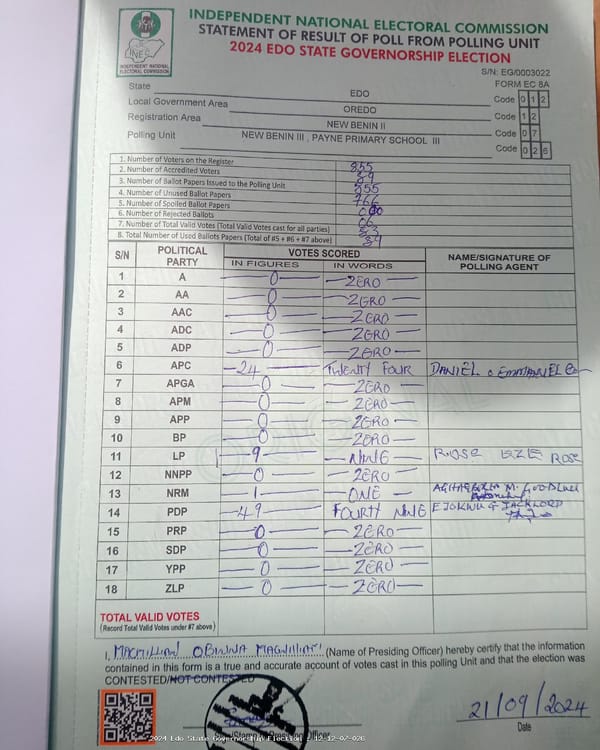 INDEPENDENT NATIONAL ELECTORAL COMMISSION
STATEMENT OF RESULT OF POLL FROM POLLING UNIT
2024 EDO STATE GOVERNORSHIP ELECTION
INEC
INDEPENDENT NATIONAL
ELECTORAL COMMISSION
S/N: EG/0003022
FORM EC 8A
State EDO Code 0 1 2
Local Government Area OREDO Code 1 2
Registration Area NEW BENIN II Code 0 7
Polling Unit NEW BENIN III , PAYNE PRIMARY SCHOOL III Code 0 2 6
1. Number of Voters on the Register 855
2. Number of Accredited Voters 89
3. Number of Ballot Papers Issued to the Polling Unit 855
4. Number of Unused Ballot Papers 766
5. Number of Spoiled Ballot Papers
6. Number of Rejected Ballots 06
7. Number of Total Valid Votes (Total Valid Votes cast for all parties) 83
8. Total Number of Used Ballots Papers (Total of #5 + #6 + #7 above) 89
S/N POLITICAL PARTY VOTES SCORED NAME/SIGNATURE OF POLLING AGENT
IN FIGURES IN WORDS
1 A 0 ZERO
2 AA 0 ZERO
3 AAC 0 ZERO
4 ADC 0 ZERO
5 ADP 0 ZERO
6 APC 24 TWENTY FOUR DANIEL O EMMANUEL
7 APGA 0 ZERO
8 APM 0 ZERO
9 APP 0 ZERO
10 BP 0 ZERO
11 LP 9 NINE ROSE EZE ROSE
12 NNPP 0 ZERO
13 NRM 1 ONE M. GOODLUCK
14 PDP 49 FOURTY NINE
15 PRP 0 ZERO
16 SDP 0 ZERO
17 YPP 0 ZERO
18 ZLP 0 ZERO
TOTAL VALID VOTES
(Record Total Valid Votes under #7 above)
I, MACMILLIAN OBINNA (Name of Presiding Officer) hereby certify that the information
contained in this form is a true and accurate account of votes cast in this polling unit and that the election was
CONTESTED/NOT CONTESTED
21/09/2024
Date
2024 Edo State Governorship Election - 12-12-07-026